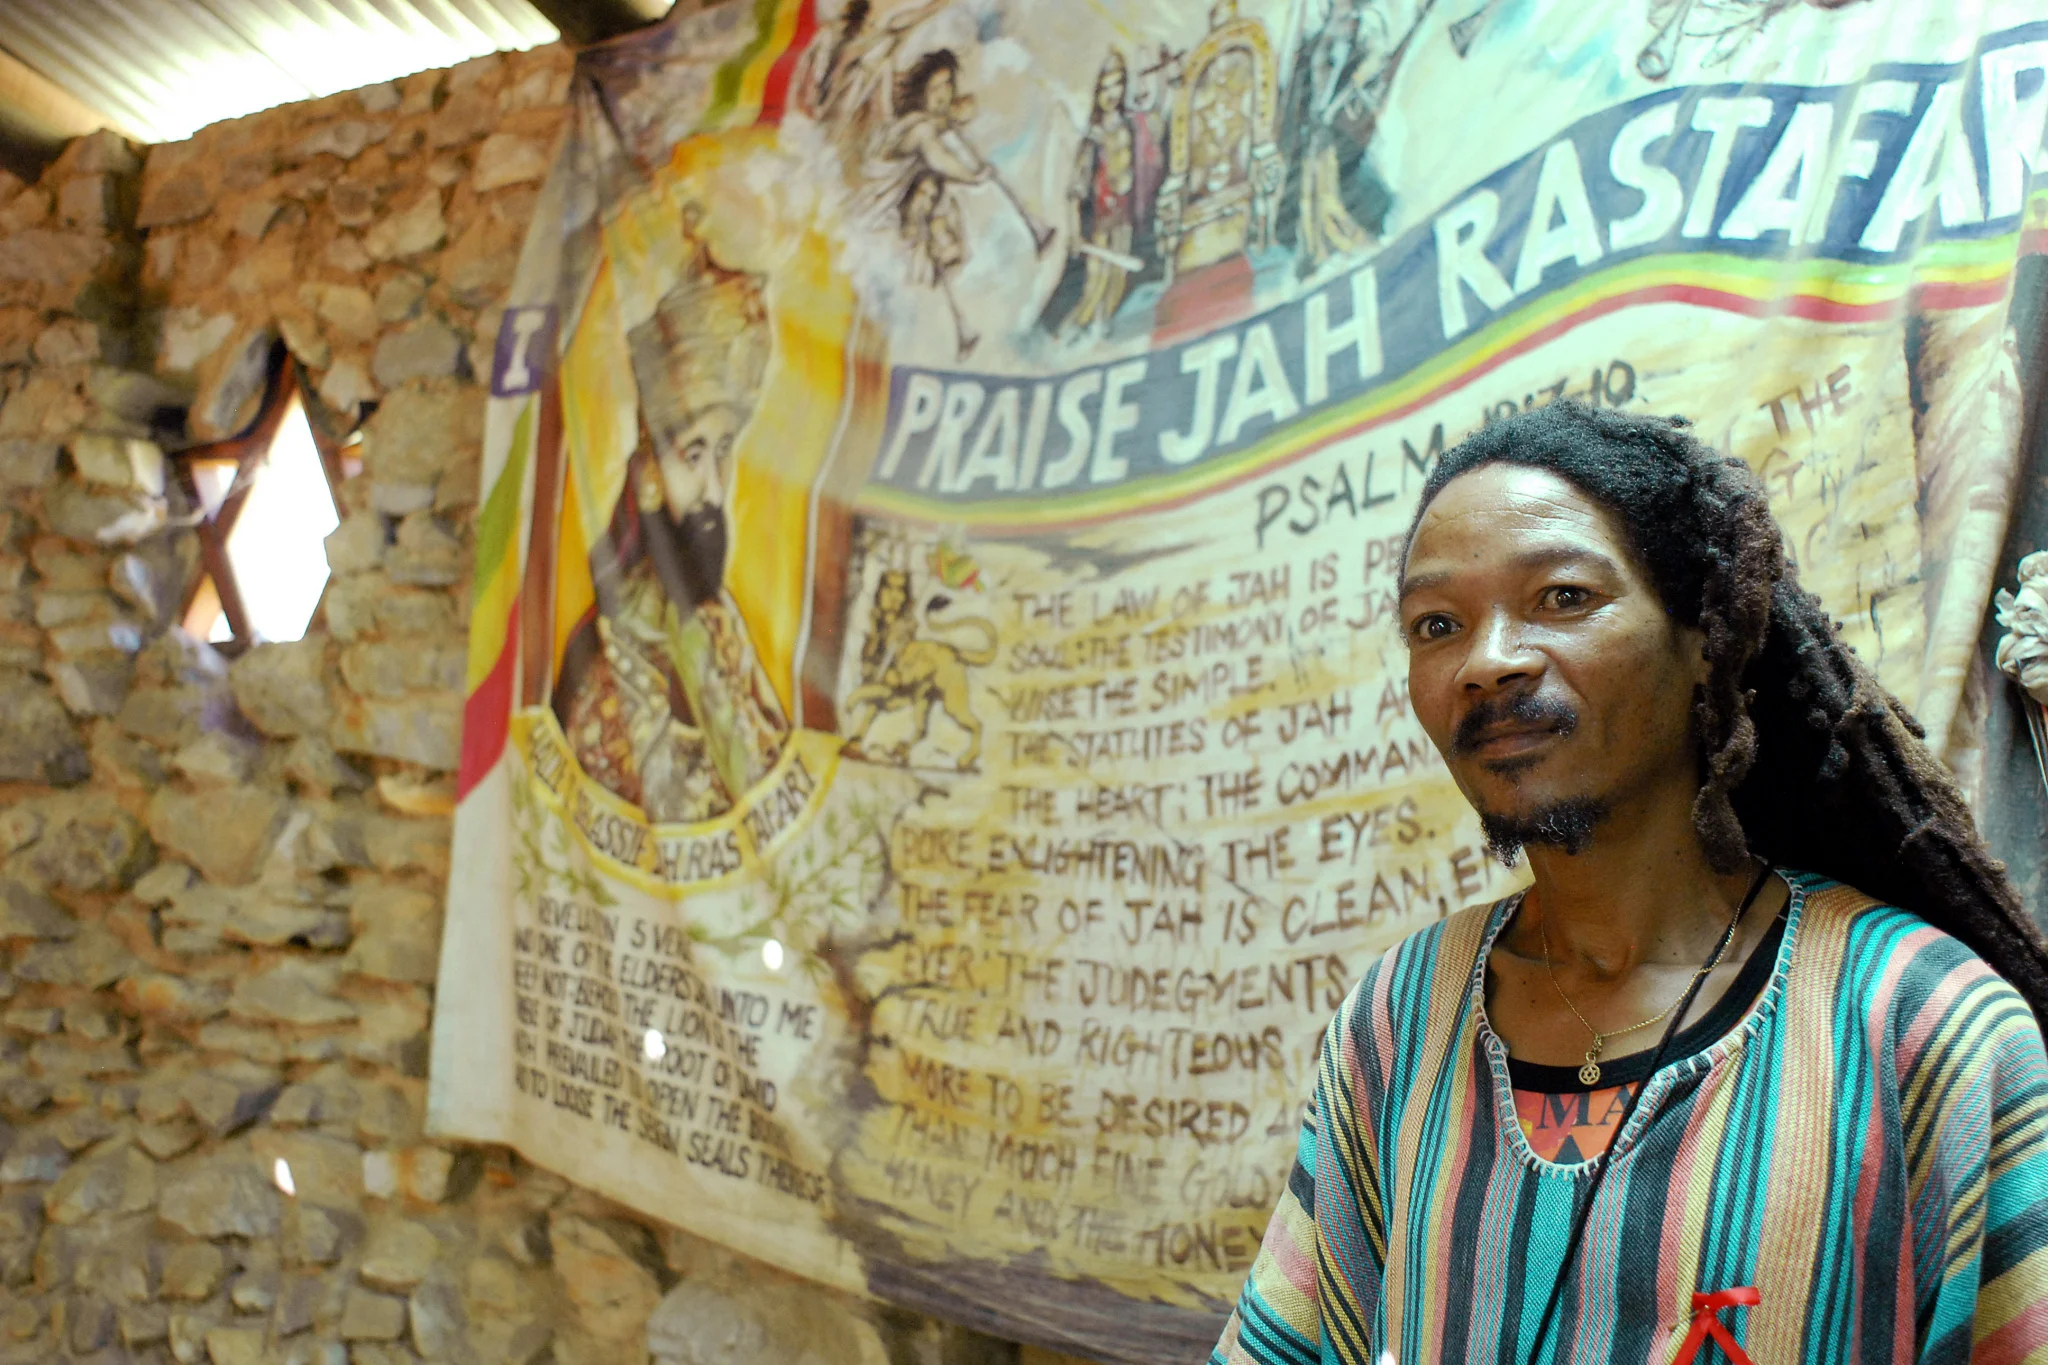 I
PRAISE JAH RASTAFAR
PSALM 19:7-10
THE
THE LAW OF JAH IS PE
SOUL: THE TESTIMONY OF JA
WISE THE SIMPLE.
THE STATUTES OF JAH A
THE HEART: THE COMMAN
PURE, ENLIGHTENING THE EYES.
THE FEAR OF JAH IS CLEAN, EN
EVER: THE JUDEGMENTS
TRUE AND RIGHTEOUS
MORE TO BE DESIRED A
THAN MUCH FINE GOLD:
HONEY AND THE HONEY
SELASSIE JAH RASTAFARI
REVELATION 5 VER
AND ONE OF THE ELDERS UNTO ME
WEEP NOT: BEHOLD THE LION THE
TRIBE OF JUDAH THE ROOT OF DAVID
HATH PREVAILED TO OPEN THE BOOK
AND TO LOOSE THE SEVEN SEALS THEREOF
MA